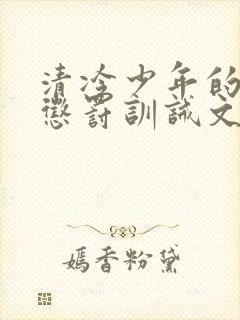 清冷少年的
懲罰訓誡文
嫣香粉黛